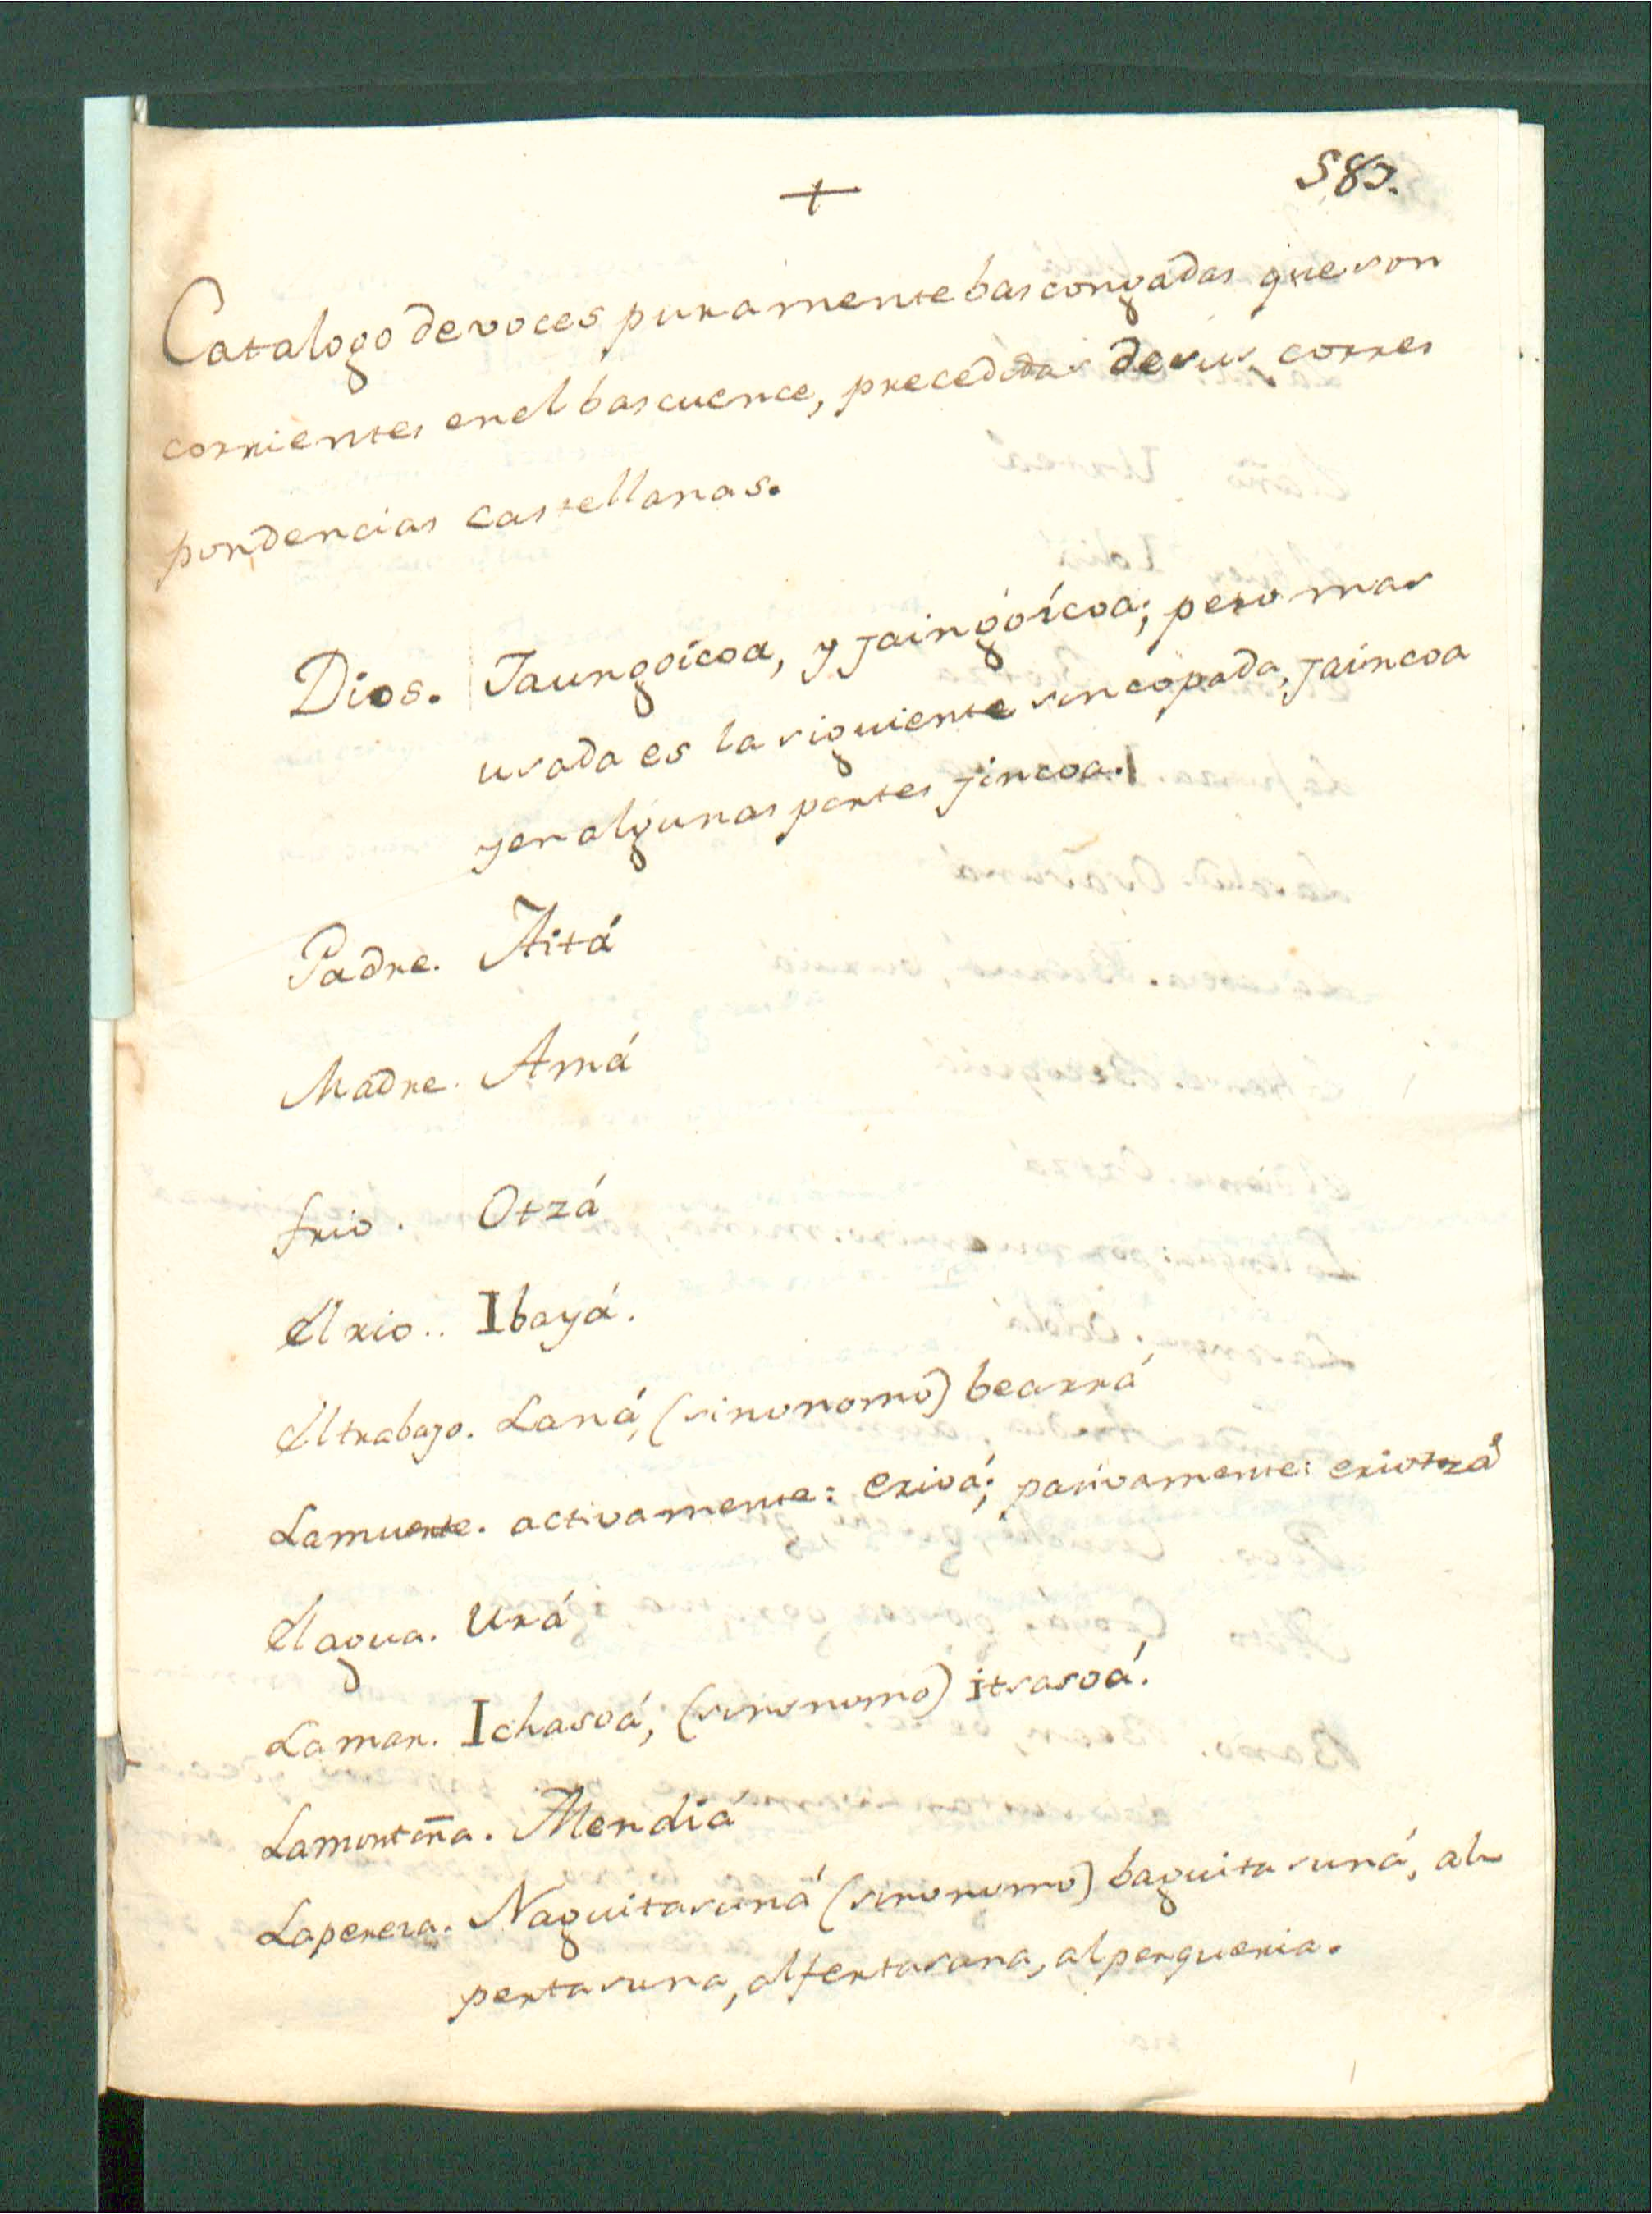 +
587.
Catalogo de voces puramente bascongadas que son
corrientes en el bascuence, precedidas de sus corres
pondencias castellanas.
Dios. Jaungoícoa, y jaingóícoa; pero mas
usada es la siguiente sincopada, jaincoa
y en algunas partes jincoa.
Padre. Aitá
Madre. Amá
frio. Otzá
El rio.. Ibayá.
El trabajo. Laná, (sinonomo) bearrá
La muerte. activamente: erioá; pasivamente: eriotzá
El agua. Urá
La mar. Ichasoá, (sinonomo) itsasoá.
La montaña. Mendiá
La pereza. Naguitasuná (sinonomo) baguitasuná, al-
pertasuna, alfertasana, alperqueria.